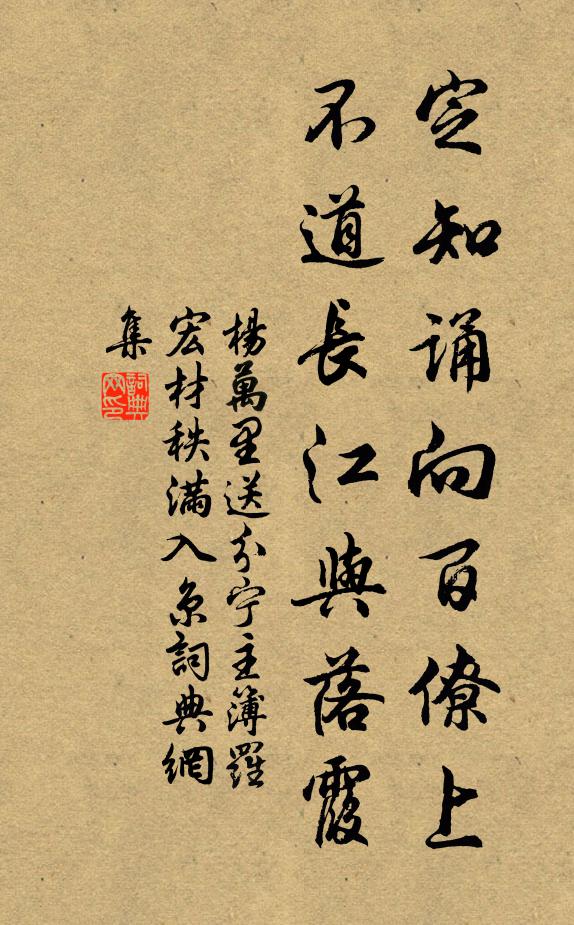 定知誦向百僚上
不道長江與落霞
楊萬里送分寧主簿羅
宏材秩滿入京詞典網
集
詞典
网印